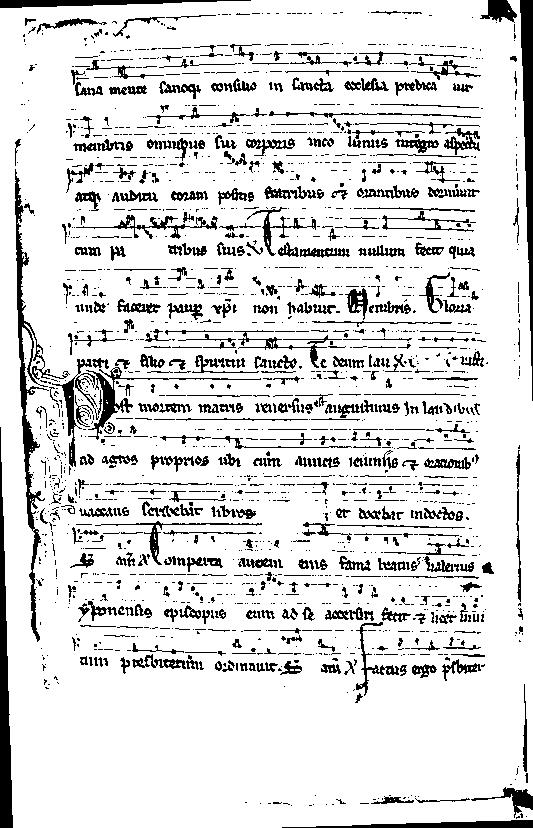 sana mente sanoque consilio in sancta ecclesia predica uit
membris omnibus sui corporis inco lumis integro aspectu
atque auditu coram positis fratribus et orantibus dormiuit
cum pa tribus suis. Testamentum nullum fecit quia
unde faceret pauper xpi non habuit. Membris. Gloria
patri et filio et spiritui sancto. Te deum lau
Post mortem matris reuersus est augustinus In laudibus
ad agros proprios ubi cum amicis ieiuniis et orationibus
uacans scribebat libros et docebat indoctos.
Comperta autem eius fama beatus ualerius
yponensis episcopus eum ad se accersiri fecit et
tum presbiterum ordinauit. Factus ergo presbiter